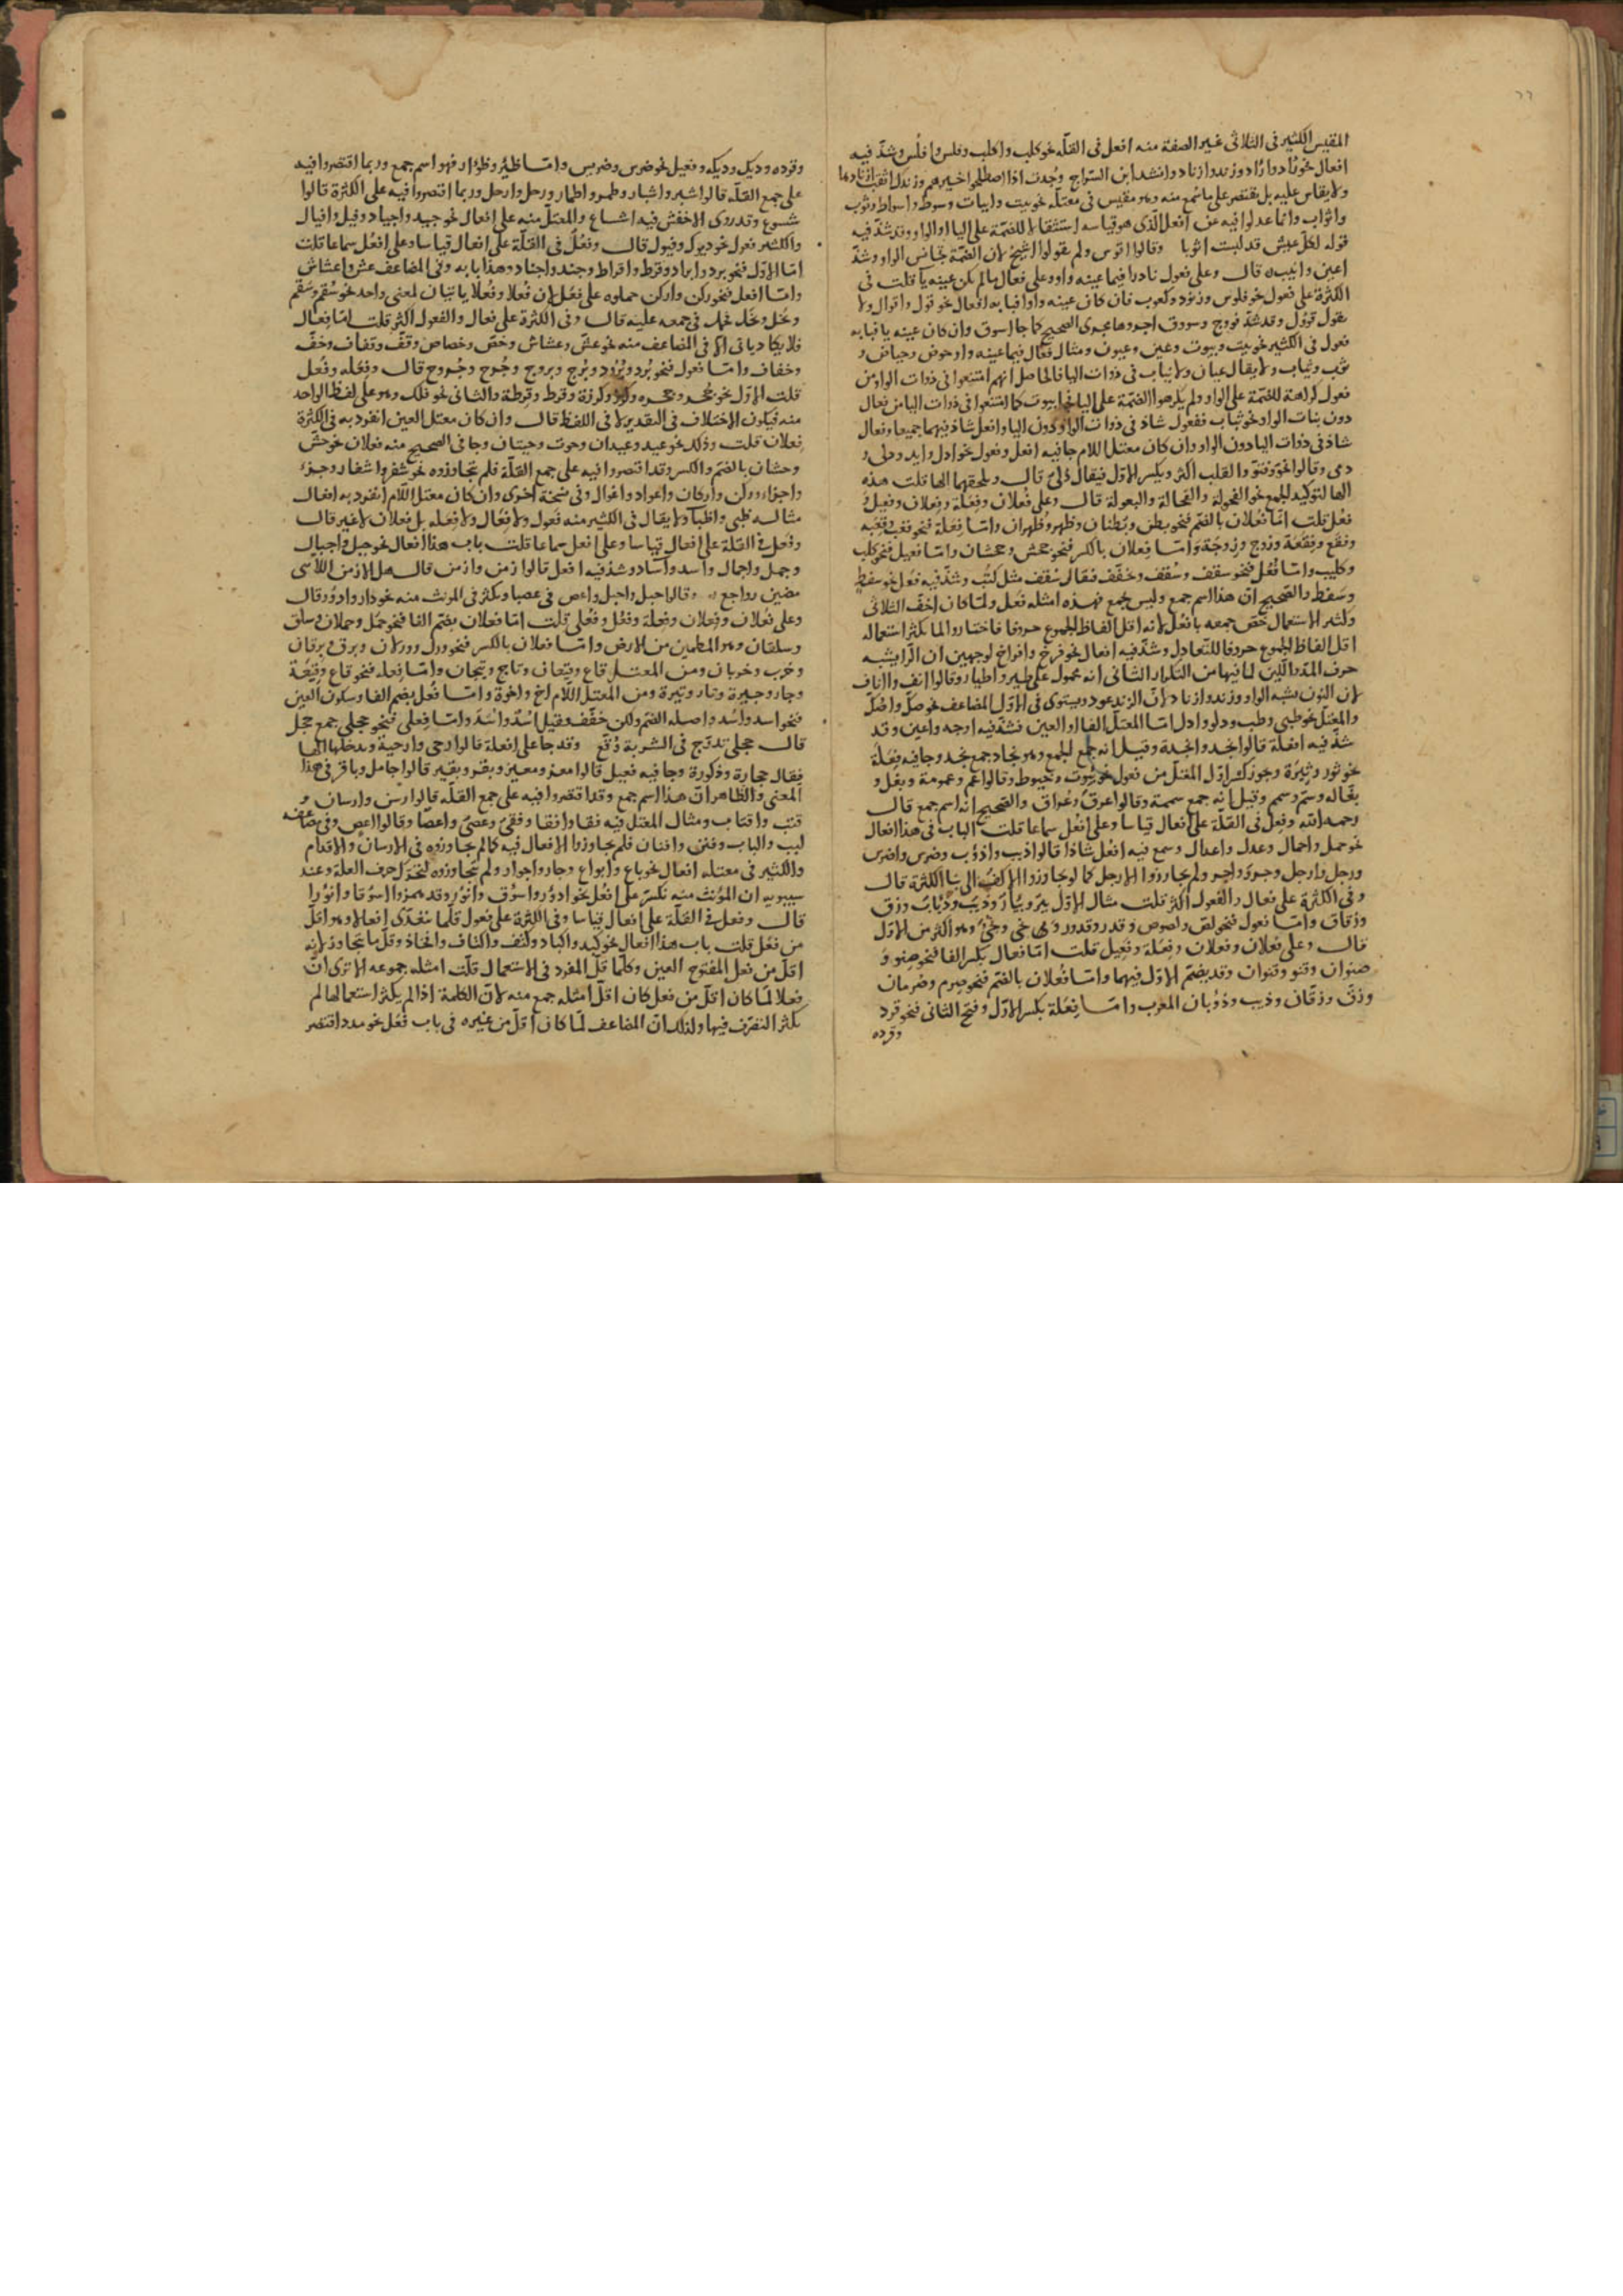 ٢٢
المقيس الكثير فى الثلاثى غير الصفة منه افعل فى القلّة نحو كلب واكلب وفلس وافلس وشذّ فيه
افعال نحو راد واراد وزند وازناد وانشد ابن السّراج وُجدتَ اذا اصطلحوا خيرهم وزندك اثقب ازنادها
ولا يقاس عليه بل يقتصر على ما سُمع منه وهو مقيس فى معتلّه نحو بيت وابيات وسوط واسواط وثوب
واثواب وانما عدلوا فيه عن افعل الّذى هو قياسه استثقالا للضمّة على اليا او الواو وقد شذّ فيه
قوله لكلّ عيش قد لبست اثوبا وقالوا اقوس ولم يقولوا الشيخ لان الضمّة تجانس الواو وشذّ
اعين وانيب قال وعلى فعول نادرا فيما عينه واو وعلى فعال ما لم تكن عينه ياً قلت فى
الكثرة على فعول نحو فلوس وزنود وكعوب فان كان عينه واوا فبابه افعال نحو قول واقوال ولا
يقول قوُول وقد شذّ فووج وسووق اجروها مجرى الصحيح كما جا اسوق وان كان عينه يا فبابه
فعول فى الكثير نحو بيت وبيوت وعين وعيون ومثال فعال فيما عينه واو حوض وحياض و
ثوب وثياب ولا يقال عيان ولا بيات فى ذوات اليا فالحاصل انهم امتنعوا فى ذوات الواو من
فعول كراهة للضمّة على الواو ولم يكرهوا الضمّة على اليا فى بيوت كما امتنعوا فى ذوات اليا من فعال
دون بنات الواو نحو ثياب ففعول شاذ فى ذوات الواو دون اليا وافعل شاذ فيهما جميعا وفعال
شاذ فى ذوات اليا دون الواو وان كان معتل اللام جا فيه افعل وفعول نحو ادل وايد ودلى و
دمى وقالوا نحوّ وفتوّ والقلب اكثر ويكسر الاوّل فيقال دِلىّ قال ويلحقهما الها قلت هذه
الها لتوكيد الجمع نحو الفحولة والفحالة والبعولة قال وعلى فُعلان وفِعَلة وفِعلان وفعيل و
فُعُل قلت امّا فُعلان بالضم فنحو بطن وبُطنان وظهر وظُهران وامّا فِعَلة فنحو
وفقع وفِقَعَة وزوج وزِوَجَة وامّا فِعلان بالكسر فنحو جحش وجحشان وامّا فعيل فنحو كلب
وكليب وامّا فُعُل فنحو سقف وسُقف وخفّف فقال سُقف مثل كتُب وشذّ فيه فُعل نحو سقط
وسقط والصّحيح انّ هذا اسم جمع وليس بجمع فهذه امثله فَعل ولمّا كان اخفّ الثلاثى
وكثير الاستعمال خصّ جمعه بافعُل لانه اقل الفاظ الجموع حروفا فاختاروا لما يكثر استعماله
اقل الفاظ الجموع حروفا للتعادل وشذّ فيه افعال نحو فرخ وافراخ لوجهين ان الرا يشبه
حرف المدّ واللين لما فيها من التكرار الثانى انه محمول على طير واطيار وقالوا انف واناف
لان النون يشبه الواو وزند وازناد لانّ الزند عود ويستوى فى الاوّل المضاعف نحو صكّ واصُكّ
والمعتلّ نحو ظبى وظب ودلو وادل امّا المعتلّ الفا او العين فشذّ فيه اوجه واعين وقد
شذّ فيه افعلة قالوا نجد وانجدة وقيل انه جمع الجمع وهو نجاد جمع نجد وجا فيه فِعَلة
نحو ثور وثِيَرة وجوّز كسر اوّل المعتلّ من فعول نحو بيوت وخيوط وقالوا عمّ وعمومة وبغل و
بغاله وسمّ وسمم وقيل انه جمع سممة وقالوا عرق وعُراق والصّحيح انّه اسم جمع قال
رحمه الله وفِعل فى القلّة على افعال قياسا وعلى افعُل سماعا قلت الباب فى هذا افعال
نحو حمل واحمال وعدل واعدال وسمع فيه افعل شاذا قالوا ذيب واذؤب وضرس واضرس
ورجل وارجل وجرو واجر ولم يجاوزوا الارجل كما لو يجاوزوا الاكفّ الى بنا الكثرة قال
وفى الكثرة على فعال والفعول اكثر قلت مثال الاوّل بئر وبئار وذيب وذياب وزق
وزقاق وامّا فعول فنحو لصّ ولصوص وقدر وقدور ونحى ونحىّ وهو اكثر من الاوّل
قال وعلى فُعلان وفِعلان وفِعَلة وفَعِيل قلت امّا فعلان بكسر الفا فنحو صِنو و
صنوان وقنو وقنوان وقد يضمّ الاوّل فيهما وامّا فُعلان بالضّم فنحو صِرم وصُرمان
وزقّ وزقّان وذيب وذؤبان المغرب وامّا فِعَلة بكسر الاوّل وفتح الثانى فنحو قرد
وقرده
وقرده وديك وديكه وفعيل نحو ضرس وضريس وامّا ظِئر وظؤار فهو اسم جمع وربما اقتصروا فيه
على جمع القلّة قالوا شبر واشبار وطمر واطمار ورحل وارحل وربما اقتصروا فيه على الكثرة قالوا
شسوع وقد روى الاخفش فيه اشساع والمعتلّ منه على افعال نحو جيد واجياد وفيل وافيال
والكثير فعول نحو ديوك وفيول قال وفُعْل فى القلّة على افعال قياسا وعلى افعُل سماعا قلت
امّا الاوّل فنحو برد وابراد وقرط واقراط وجند واجناد وهذا بابه وفى المضاعف عش واعشاش
وامّا افعل فنحو ركن واركن حملوه على فَعَل لان فُعلا وفَعَلا ياتيان لمعنى واحد نحو سُقم وسَقَم
وبُخل وبَخَل فحمل فى جمعه عليه قال وفى الكثرة على فعال والفعول اكثر قلت امّا فِعال
فلا يكاد ياتى الا فى المضاعف منه نحو عشّ وعشاش وخصّ وخصاص وقفّ وقفاف وخفّ
وخفاف وامّا فعول فنحو بُرد وبُرُود وبُرج وبروج وجُرح وجُروح قال وفِعَلة وفُعْل
قلت الاوّل نحو جُحر وجحره وكوز وكوزة وقرط وقِرطة والثانى نحو فلك وهو على لفظ الواحد
منه فيكون الاختلاف فى التقدير لا فى اللفظ قال وان كان معتل العين انفرد به فى الكثرة
فِعلان قلت وذلك نحو عيد وعيدان وحوت وحيتان وجا فى الصحيح منه فعلان نحو حشّ
وحشان بالضّم والكسر وقد اقتصروا فيه على جمع القلّة فلم يتجاوزوه نحو شفر واشفار وجزء
واجزاء وركن واركان واعواد واغوال وفى نسخة اخرى وان كان معتل اللّام انفرد به افعال
مثاله ظبى واظبا ولا يقال فى الكثير منه فعول ولا فُعال ولا فِعله بل فعلان لا غير قال
وفَعَل فى القلّة على افعال قياسا وعلى افعل سماعا قلت باب هذا افعال نحو جبل واجبال
وجمل واجمال واسد واساد وشذ فيه افعل قالوا زمن وازمن قال هل الازمن اللّاتى
مضين رواجع وقالوا حبل واحبل واعص فى عصا ويكثر فى المونث منه نحو دار وادوُر قال
وعلى فُعلان وفِعلان وفِعلة وفُعْل وفِعْلى قلت امّا فعلان بضّم الفا فنحو حمل وحملان وسلق
وسلقان وهو المطمئن من الارض وامّا فعلان بالكسر فنحو ورل وورلان وبرق وبرقان
وخرب وخربان ومن المعتل قاع وقيعان وتاج وتيجان وامّا فِعله فنحو قاع وقِيعَة
وجار وجيرة ونار ونيرة ومن المعتل اللّام اخ واخوة وامّا فُعْل بضم الفا وسكون العين
فنحو اسد واُسْد واصله الضّم ولكن خفّف وقيل اسُد واسْد وامّا فِعلى فنحو حجلى جمع حجل
قال حجلى تدرّج فى الشربة وُقّع وقد جا على افعلة قالوا رحى وارحية ويدخلها الها
فيقال حجارة وذكورة وجا فيه فعيل قالوا معز ومعيز وبقر وبقير قالوا جامل وباقر فى هذا
المعنى والظاهر انّ هذا اسم جمع وقد اقتصروا فيه على جمع القلّة قالوا رسن وارسان و
قتب واقتاب ومثال المعتل فيه نقا وانقا وقفى وعصىّ واعصا وقالوا اعص وفى مضاعفه
لبب والباب وفنن وافنان فلم يجاوزوا الافعال فيه كما لم يجاوزوه فى الارسان والاقدام
والكثير فى معتله افعال نحو باع وابواع وجار واجوار ولم يتجاوزوه لتحرّك حرف العلة وعند
سيبويه ان المؤنث منه تكسّر على افعُل نحو ادوُر واسوُق وانوُر وقد همزوا اسؤقا وانؤرا
قال وفَعِل فى القلّة على افعال قياسا وفى الكثرة على فعول قلّما تتعدّى افعالا وهو اقلّ
من فَعَل قلت باب هذا افعال نحو كبد واكباد وكتف واكتاف وافخاذ وقلّ ما يتجاوز لانه
اقل من فعل المفتوح العين وكلّما قلّ المفرد فى الاستعمال قلّت امثلة جموعه الا ترى انّ
فعلا لمّا كان اقل من فعل كان اقل امثله جمع منه لانّ الكلمة اذا لم يكثر استعمالها لم
يكثر التصّرف فيها ولذلك انّ المضاعف لمّا كان اقلّ من غيره فى باب فَعَل نحو مدد اقتصر